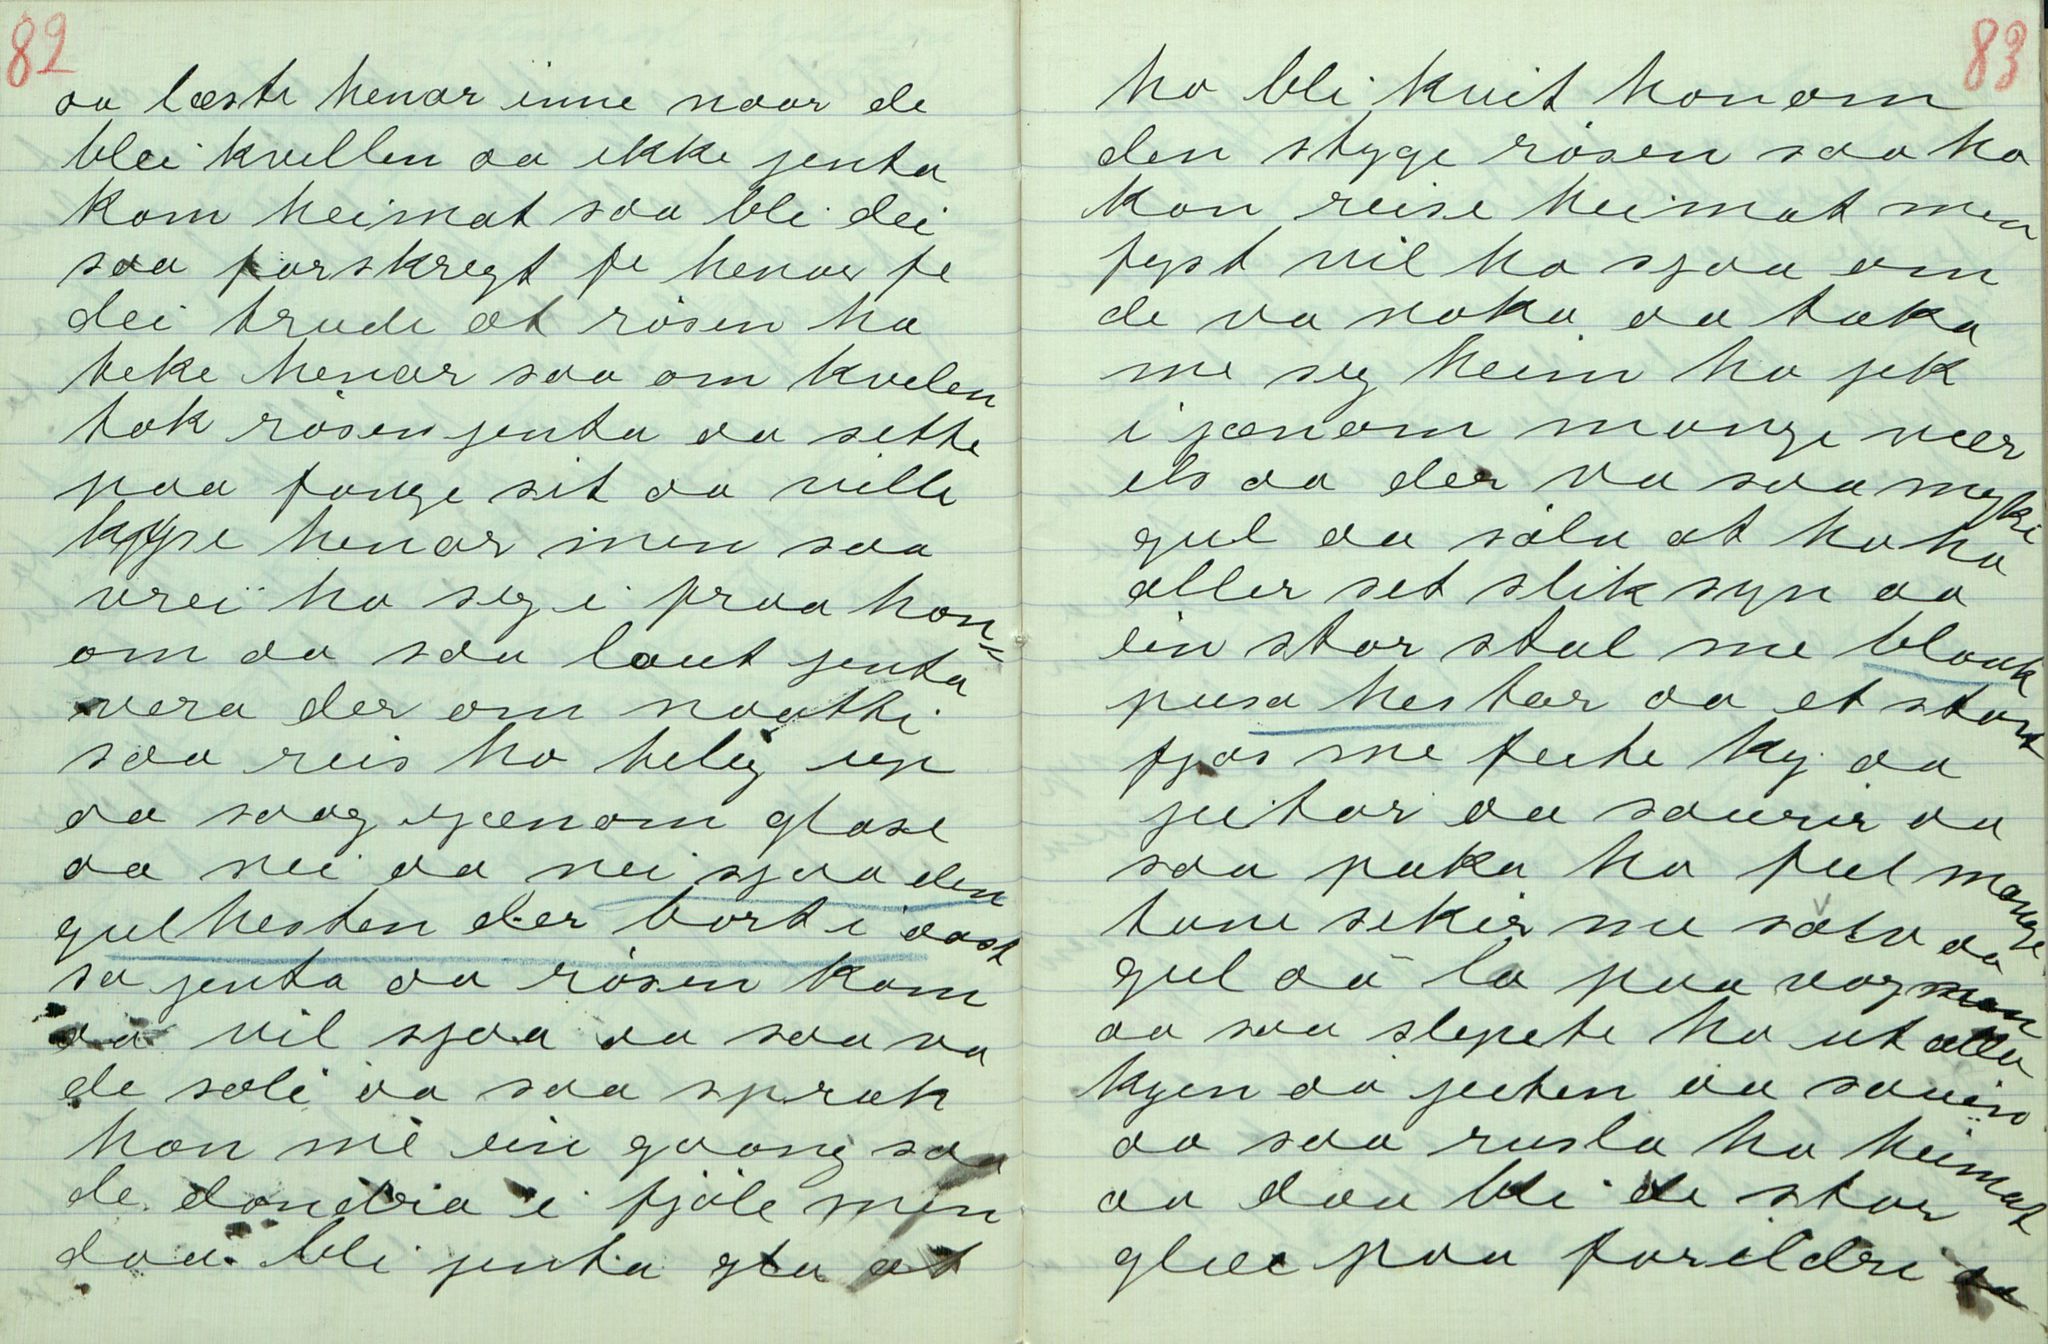 82
aa læste henar inne naar de
blei kvellen aa ikke jenta
kom heimat saa bli dei
saa forskregt fe henar fe
dei trude at risen ha
teke henar saa om kvelen
tok risen jenta aa sette
paa fange sit aa ville
kysse henar men saa
vrei ho seg i fraa hon=
om aa saa laut jenta
vera der om naatti
saa reis ho helig up
aa saag igænom glase
aa nei aa nei sjaa den
gulhesten der bort i aast
sa jenta aa risen kom
aa vil sjaa aa saa va
de soli aa saa sprak
han mé ein gaang saa
de dondra i fjøle men
daa bli jenta gla at
83
ho bli kvit honom
den styge risen saa ho
kan reise heimat men
fyst vil ho sjaa om
de va noko aa taka
me seg heim ho jek
i jænom mange vær
els aa der va saa myki
gul aa sølv at ho ha
aller set slik syn aa
ein stor stal me blank
pusa hestar aa et stort
fjøs me feite ky aa
jeitar aa sauir aa
saa paka ho ful mange
tune sekir me sølv aa
gul aa la paa vognen
aa saa slepte ho ut alla
kyen aa jeiten aa sauin
aa saa rusla ho heimat
aa daa bli de stor
glæe paa foreldri